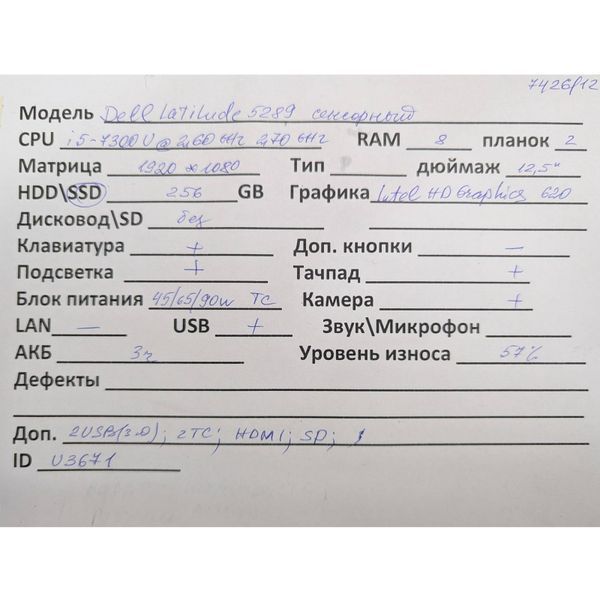 7426/12
Модель Dell Latitude 5289 сенсорный
CPU i5-7300U @ 2,60 GHz 2,70 GHz RAM 8 планок 2
Матрица 1920 x 1080 Тип дюймаж 12,5"
HDD\SSD 256 GB Графика Intel HD Graphics 620
Дисковод\SD без
Клавиатура + Доп. кнопки —
Подсветка + Тачпад +
Блок питания 45/65/90w TC Камера +
LAN — USB + Звук\Микрофон
АКБ 3ч Уровень износа 57%
Дефекты
Доп. 2USB(3.0); 2TC; HDMI; SD;
ID U3671